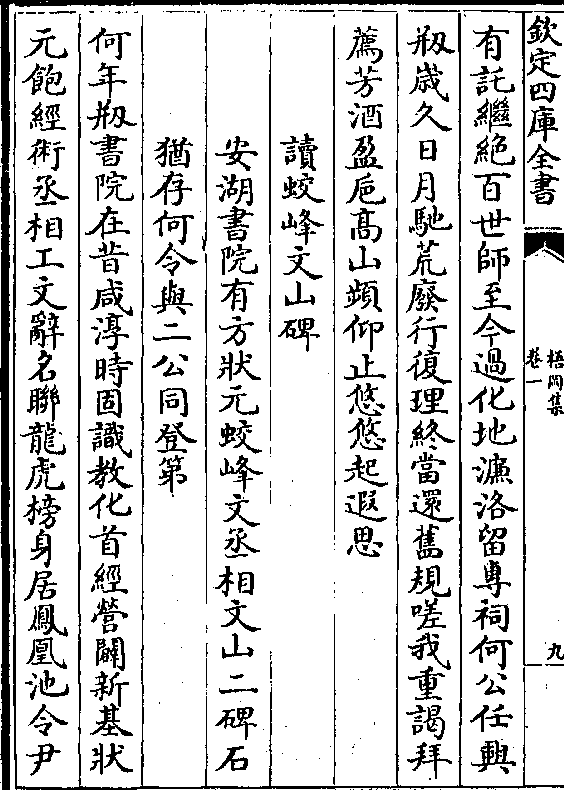 欽定四庫全書
梧岡集
卷一
九
有託繼絶百世師至今過化地濂洛留專祠何公任興
剏歳久日月馳荒廢行復理終當還舊規嗟我重謁拜
薦芳酒盈巵髙山頻仰止悠悠起遐思
讀蛟峰文山碑
安湖書院有方狀元蛟峰文丞相文山二碑石
猶存何令與二公同登第
何年剏書院在昔咸淳時固識教化首經營闢新基狀
元飽經術丞相工文辭名聯龍虎榜身居鳳凰池令尹